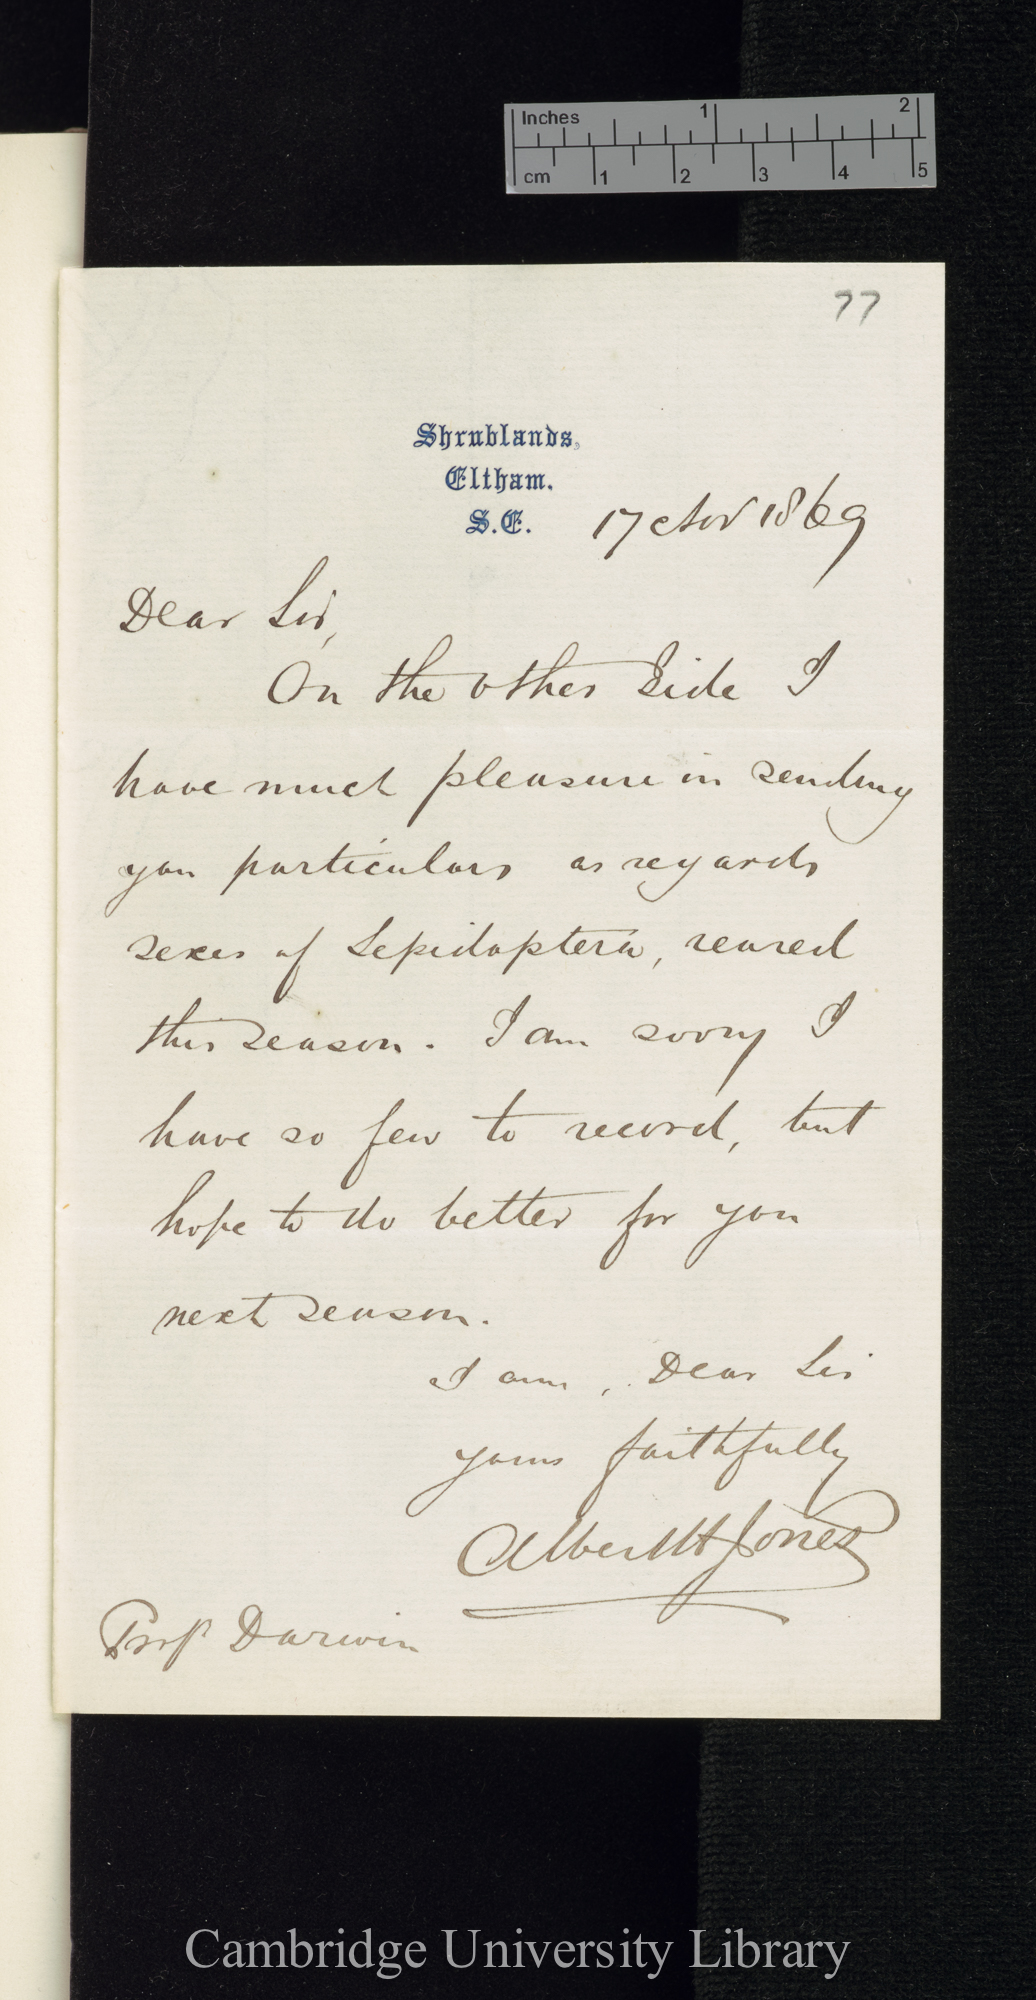 Inches 1 2
cm 1 2 3 4 5
77
Shrublands,
Eltham.
S.E.
17 Nov 1869
Dear Sir,
On the other side I
have much pleasure in sending
you particulars as regards
sexes of Lepidoptera, reared
this season. I am sorry I
have so few to record, but
hope to do better for you
next season.
I am, Dear Sir
yours faithfully
Albert H Jones
Profr Darwin
Cambridge University Library